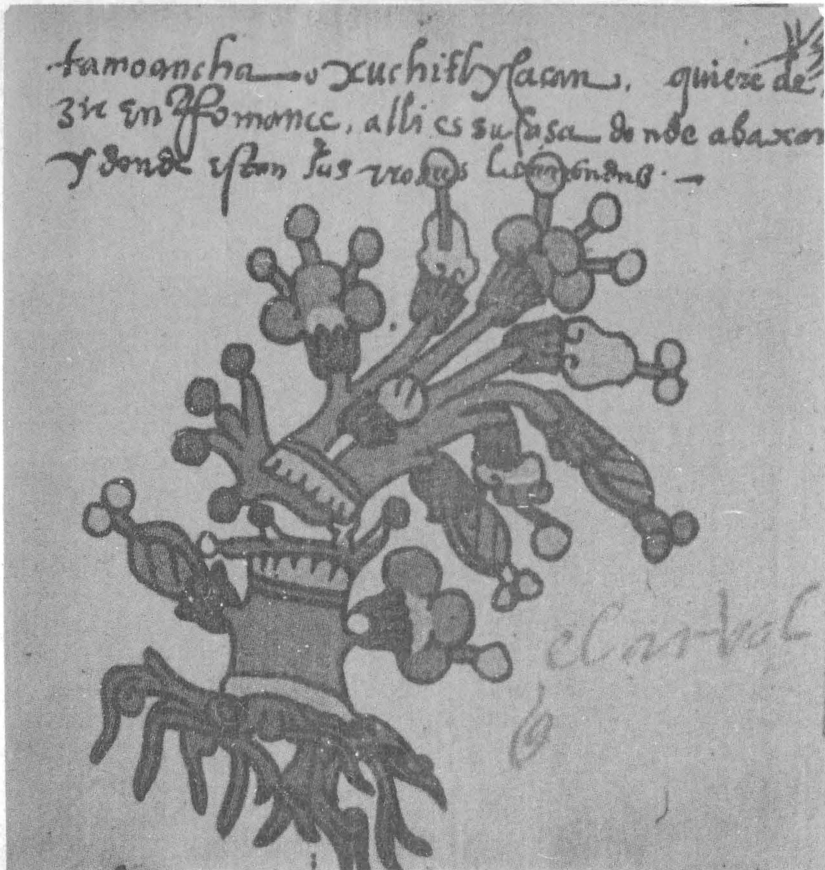 tamoancha o xuchitlycacan. quiere de
zir en Romance, alli es su casa donde abaxan
y donde estan sus
el arbol